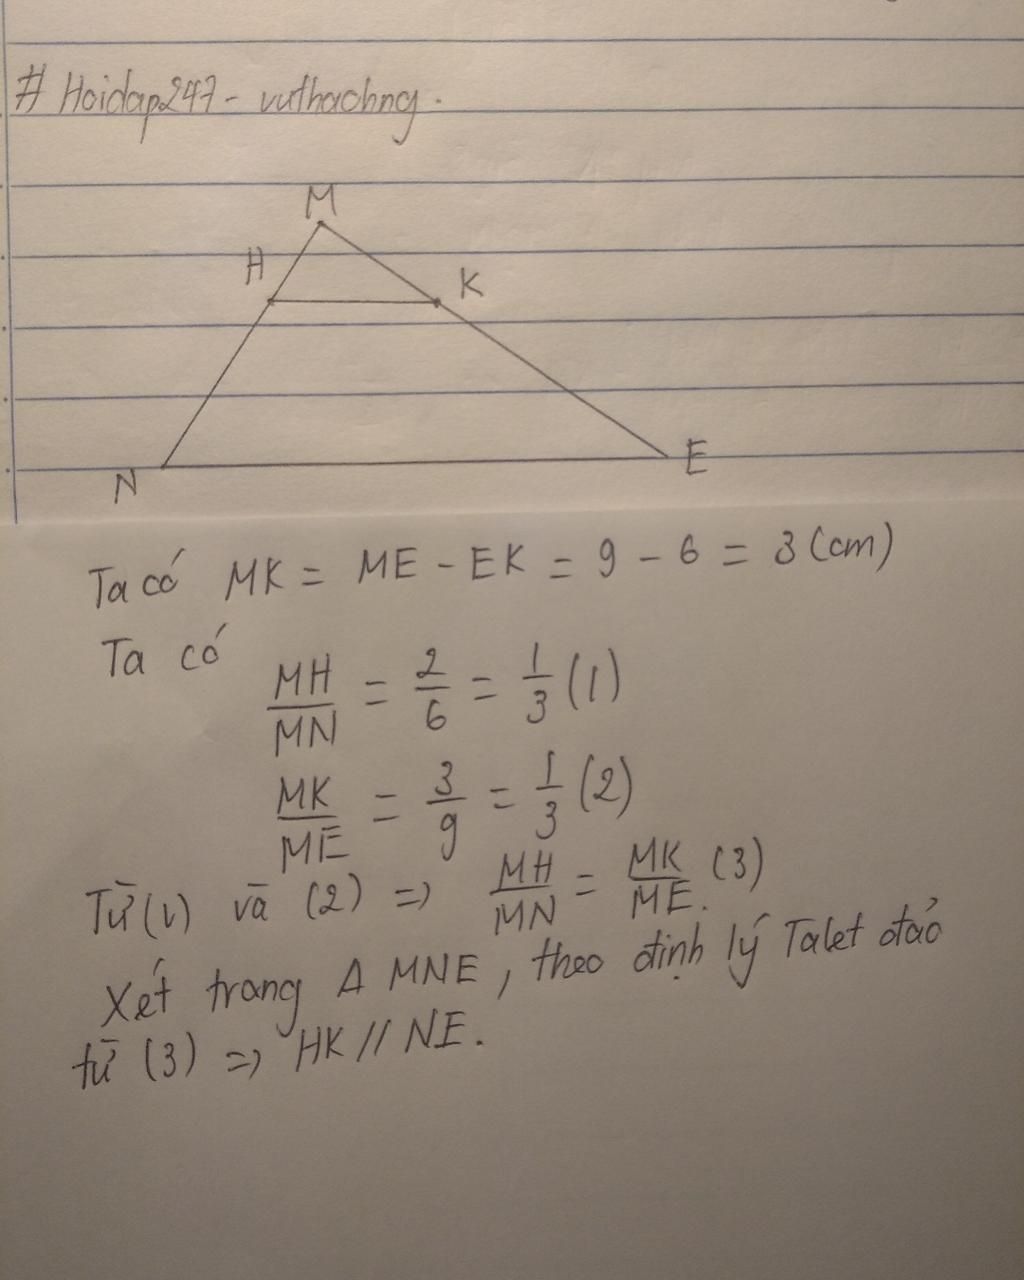 # Hoidap247 - vuthachng.
M
H
K
N
E
Ta có MK = ME - EK = 9 - 6 = 3 (cm)
Ta có
MH/MN = 2/6 = 1/3 (1)
MK/ME = 3/9 = 1/3 (2)
Từ (1) và (2) => MH/MN = MK/ME. (3)
Xét trong Δ MNE, theo định lý Talet đảo
từ (3) => HK // NE.